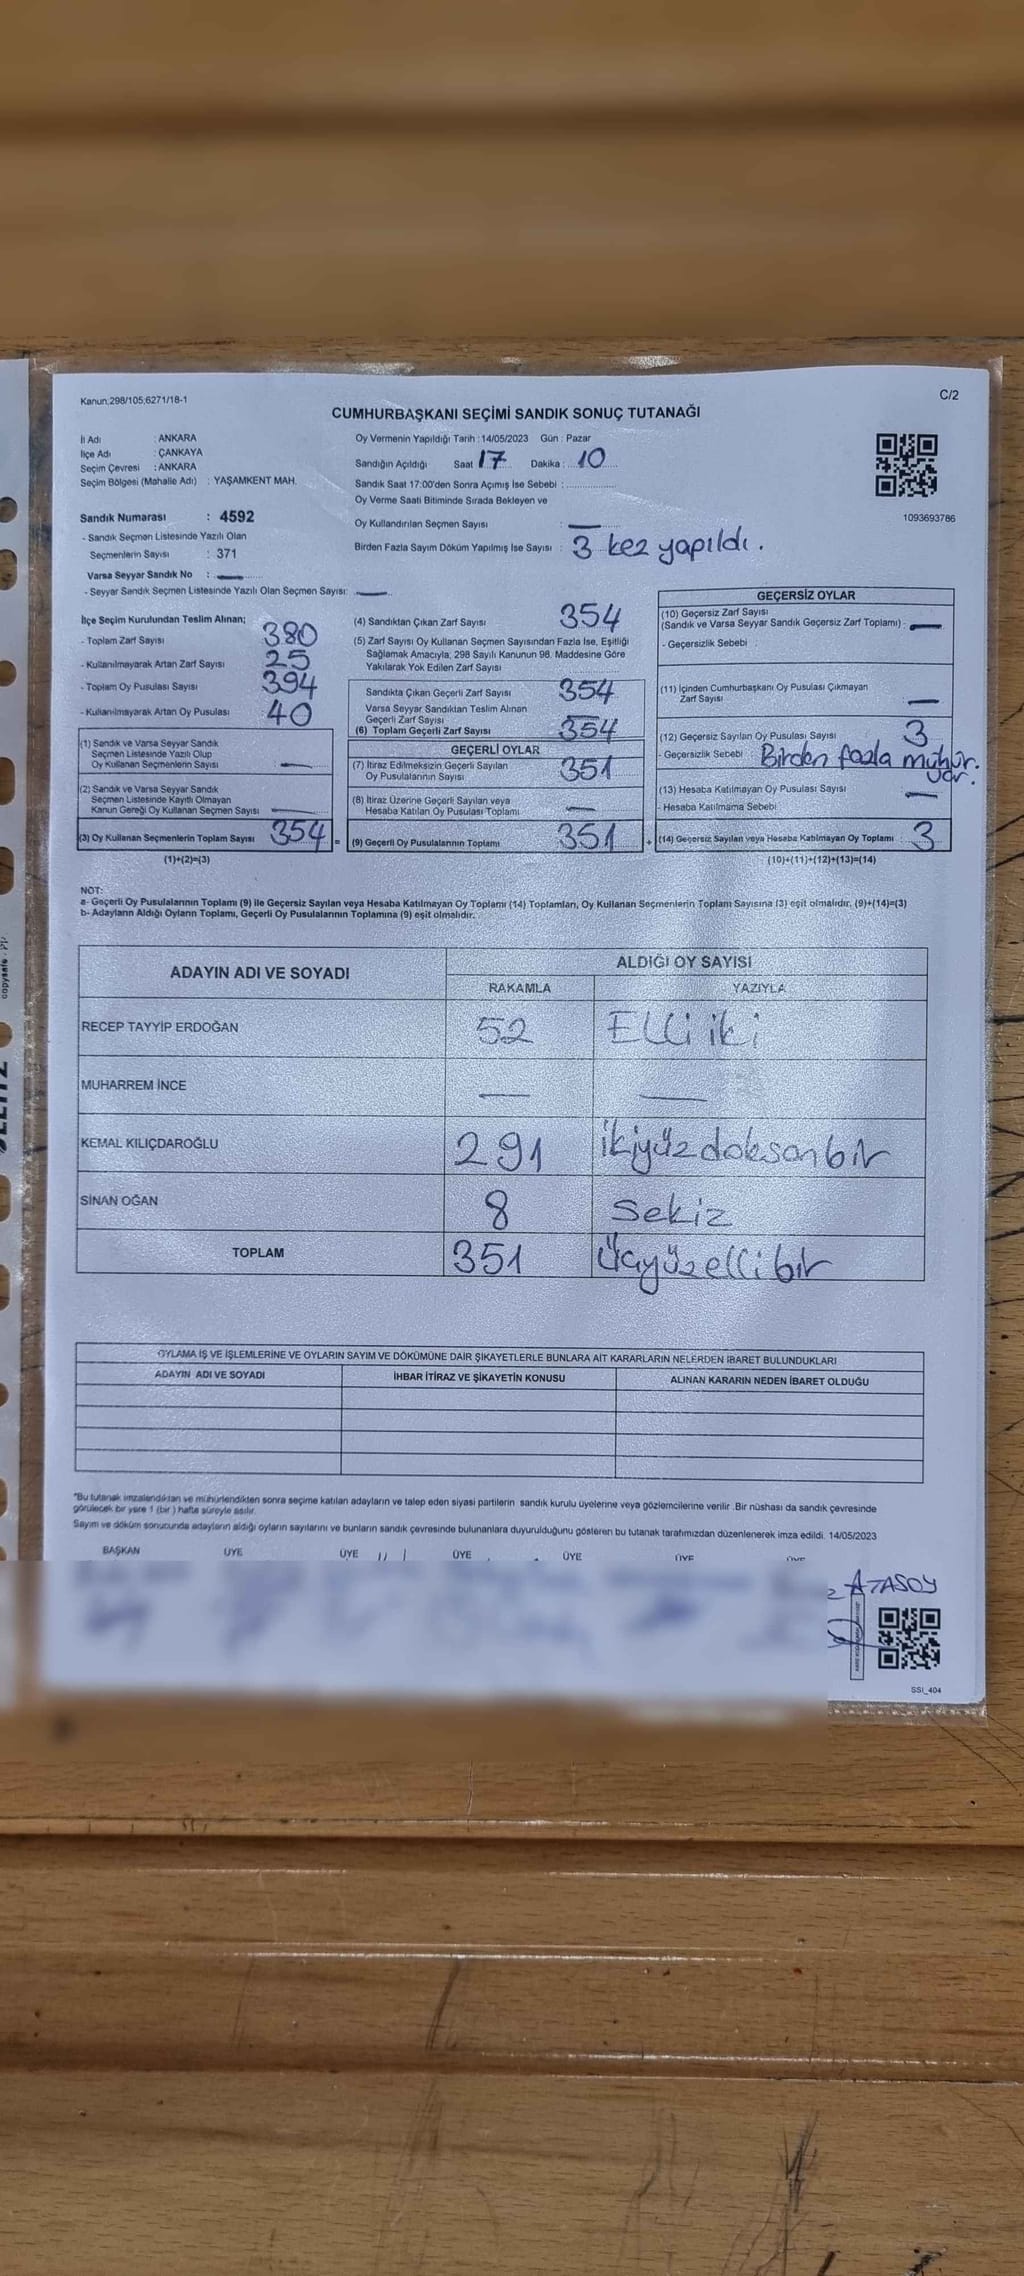 Kanun;298/105;6271/18-1
C/2
CUMHURBAŞKANI SEÇİMİ SANDIK SONUÇ TUTANAĞI
İl Adı : ANKARA
İlçe Adı : ÇANKAYA
Seçim Çevresi : ANKARA
Seçim Bölgesi (Mahalle Adı) : YAŞAMKENT MAH.
Sandık Numarası : 4592
- Sandık Seçmen Listesinde Yazılı Olan
Seçmenlerin Sayısı : 371
Varsa Seyyar Sandık No : —
- Seyyar Sandık Seçmen Listesinde Yazılı Olan Seçmen Sayısı: —
Oy Vermenin Yapıldığı Tarih : 14/05/2023 Gün : Pazar
Sandığın Açıldığı Saat 17 Dakika : 10
Sandık Saat 17:00'den Sonra Açımış İse Sebebi :
Oy Verme Saati Bitiminde Sırada Bekleyen ve
Oy Kullandırılan Seçmen Sayısı : —
Birden Fazla Sayım Döküm Yapılmış İse Sayısı : 3 kez yapıldı.
1093693786
İlçe Seçim Kurulundan Teslim Alınan;
- Toplam Zarf Sayısı 380
- Kullanılmayarak Artan Zarf Sayısı 25
- Toplam Oy Pusulası Sayısı 394
- Kullanılmayarak Artan Oy Pusulası 40
(1) Sandık ve Varsa Seyyar Sandık
Seçmen Listesinde Yazılı Olup
Oy Kullanan Seçmenlerin Sayısı —
(2) Sandık ve Varsa Seyyar Sandık
Seçmen Listesinde Kayıtlı Olmayan
Kanun Gereği Oy Kullanan Seçmen Sayısı —
(3) Oy Kullanan Seçmenlerin Toplam Sayısı 354 =
(1)+(2)=(3)
(4) Sandıktan Çıkan Zarf Sayısı 354
(5) Zarf Sayısı Oy Kullanan Seçmen Sayısından Fazla İse, Eşitliği
Sağlamak Amacıyla, 298 Sayılı Kanunun 98. Maddesine Göre
Yakılarak Yok Edilen Zarf Sayısı —
Sandıkta Çıkan Geçerli Zarf Sayısı 354
Varsa Seyyar Sandıktan Teslim Alınan
Geçerli Zarf Sayısı —
(6) Toplam Geçerli Zarf Sayısı 354
GEÇERLİ OYLAR
(7) İtiraz Edilmeksizin Geçerli Sayılan
Oy Pusulalarının Sayısı 351
(8) İtiraz Üzerine Geçerli Sayılan veya
Hesaba Katılan Oy Pusulası Toplamı —
(9) Geçerli Oy Pusulalarının Toplamı 351 +
GEÇERSİZ OYLAR
(10) Geçersiz Zarf Sayısı
(Sandık ve Varsa Seyyar Sandık Geçersiz Zarf Toplamı) : —
- Geçersizlik Sebebi :
(11) İçinden Cumhurbaşkanı Oy Pusulası Çıkmayan
Zarf Sayısı —
(12) Geçersiz Sayılan Oy Pusulası Sayısı 3
- Geçersizlik Sebebi : Birden fazla mühür.
var.
(13) Hesaba Katılmayan Oy Pusulası Sayısı —
- Hesaba Katılmama Sebebi
(14) Geçersiz Sayılan veya Hesaba Katılmayan Oy Toplamı : 3
(10)+(11)+(12)+(13)=(14)
NOT:
a- Geçerli Oy Pusulalarının Toplamı (9) ile Geçersiz Sayılan veya Hesaba Katılmayan Oy Toplamı (14) Toplamları, Oy Kullanan Seçmenlerin Toplam Sayısına (3) eşit olmalıdır. (9)+(14)=(3)
b- Adayların Aldığı Oyların Toplamı, Geçerli Oy Pusulalarının Toplamına (9) eşit olmalıdır.
ADAYIN ADI VE SOYADI ALDIĞI OY SAYISI
RAKAMLA YAZIYLA
RECEP TAYYİP ERDOĞAN 52 Elli iki
MUHARREM İNCE — —
KEMAL KILIÇDAROĞLU 291 ikiyüzdoksanbir
SİNAN OĞAN 8 sekiz
TOPLAM 351 Üçyüzellibir
OYLAMA İŞ VE İŞLEMLERİNE VE OYLARIN SAYIM VE DÖKÜMÜNE DAİR ŞİKAYETLERLE BUNLARA AİT KARARLARIN NELERDEN İBARET BULUNDUKLARI
ADAYIN ADI VE SOYADI İHBAR İTİRAZ VE ŞİKAYETİN KONUSU ALINAN KARARIN NEDEN İBARET OLDUĞU
*Bu tutanak imzalandıktan ve mühürlendikten sonra seçime katılan adayların ve talep eden siyasi partilerin sandık kurulu üyelerine veya gözlemcilerine verilir .Bir nüshası da sandık çevresinde
görülecek bir yere 1 (bir ) hafta süreyle asılır.
Sayım ve döküm sonucunda adayların aldığı oyların sayılarını ve bunların sandık çevresinde bulunanlara duyurulduğunu gösteren bu tutanak tarafımızdan düzenlenerek imza edildi. 14/05/2023
BAŞKAN ÜYE ÜYE ÜYE ÜYE ÜYE ÜYE
ATASOY
SSI_404